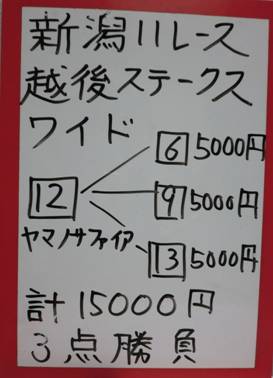 新潟11レース
越後ステークス
ワイド
6 5000円
12
9 5000円
ヤマノサファイア
13 5000円
計15000円
3点勝負